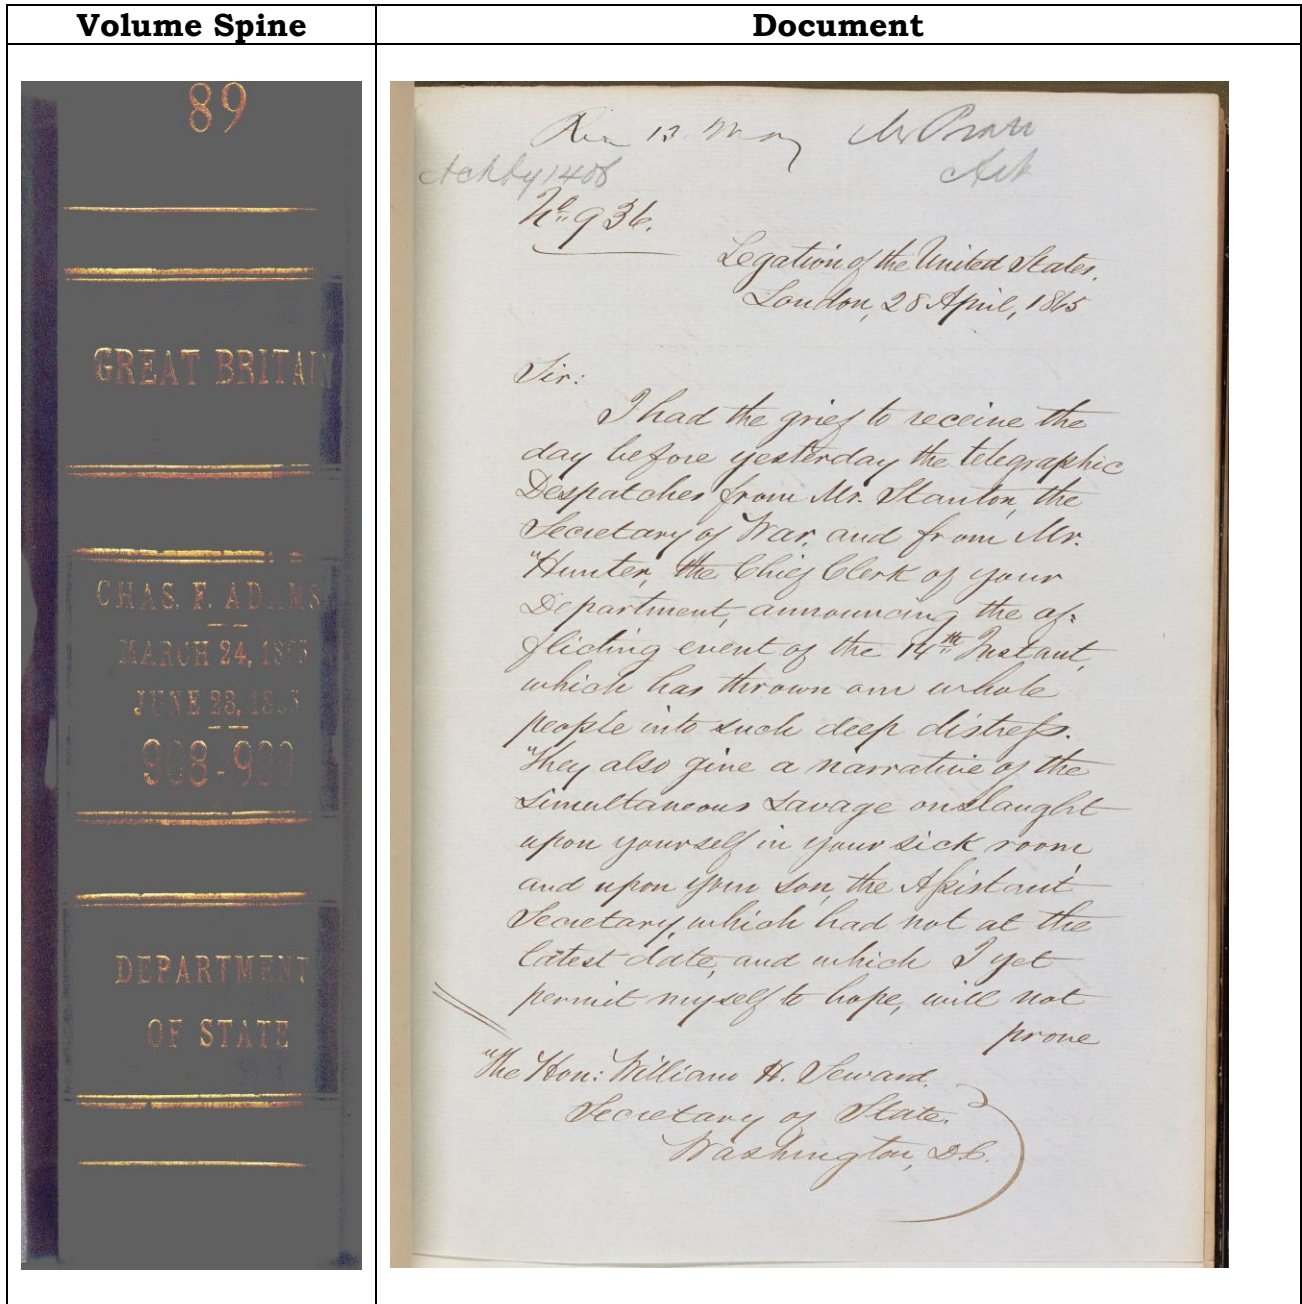 Volume Spine
Document
89
GREAT BRITAIN
CHAS. F. ADAMS
MARCH 24, 1865
JUNE 23, 1865
DEPARTMENT
OF STATE
12 May
Ackd by 1408
No 936.
Legation of the United States,
London, 28 April, 1865
Sir:
I had the grief to receive the
day before yesterday the telegraphic
Despatches from Mr. Stanton, the
Secretary of War, and from Mr.
Hunter, the Chief Clerk of your
Department, announcing the af=
flicting event of the 14th Instant,
which has thrown our whole
people into such deep distress.
They also give a narrative of the
simultaneous savage onslaught
upon yourself in your sick room,
and upon your son, the Assistant
Secretary, which had not at the
latest date, and which I yet
permit myself to hope, will not
prove
The Hon: William H. Seward,
Secretary of State,
Washington, D.C.